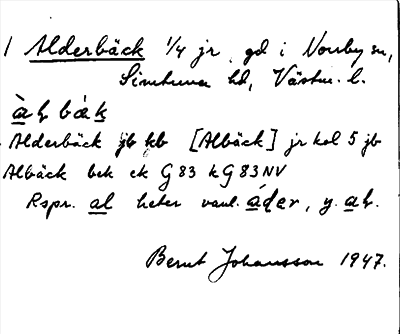 1 Alderbäck 1/4 jr, gd i Norrby sn,
Simtuna hd, Västm. l.
Alderbäck jb kb [Albäck] jr kol 5 jb
Albäck bek ek G 83 k G 83 NV
Rspr. al heter vanl. áḍer, y. 
Bernt Johansson 1947.